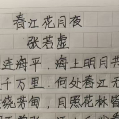 春江花月夜
张若虚
连海平,海上明月共
千万里,何处春江无
绕芳甸,月照花林皆